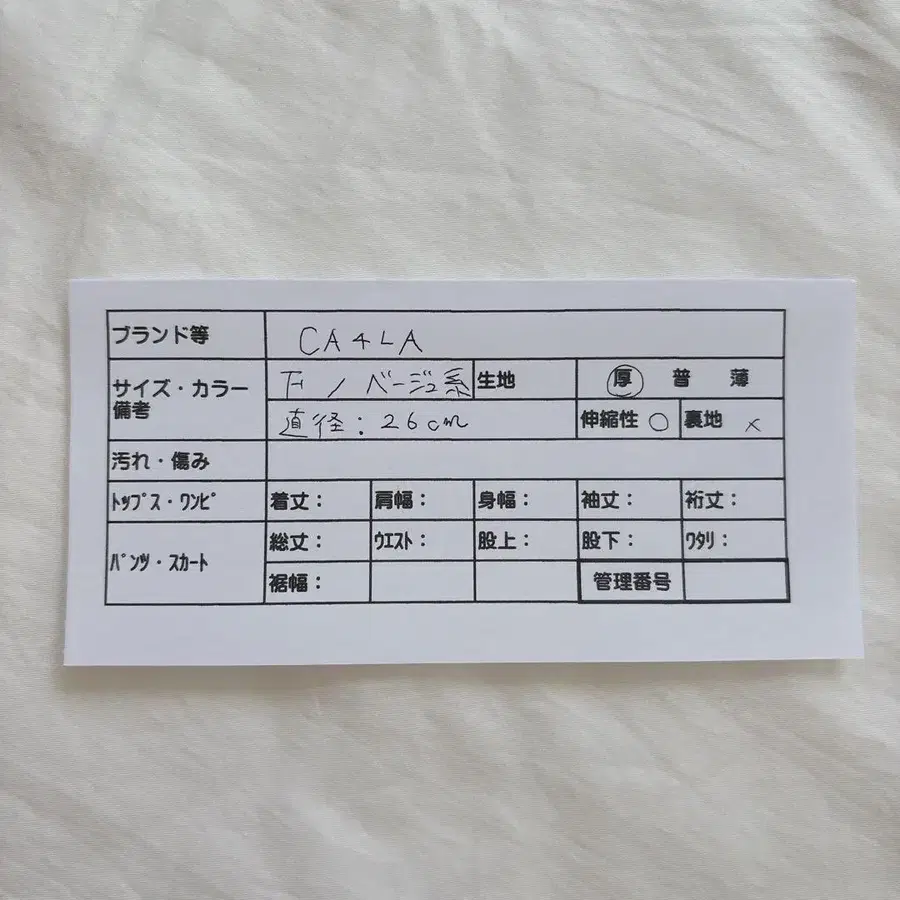 ブランド等 CA4LA
サイズ・カラー 備考 F / ベージュ系 生地 厚 普 薄
直径:26cm 伸縮性 ○ 裏地 ×
汚れ・傷み
ﾄｯﾌﾟｽ・ﾜﾝﾋﾟ 着丈: 肩幅: 身幅: 袖丈: 裄丈:
ﾊﾟﾝﾂ・ｽｶｰﾄ 総丈: ｳｴｽﾄ: 股上: 股下: ﾜﾀﾘ:
裾幅: 管理番号